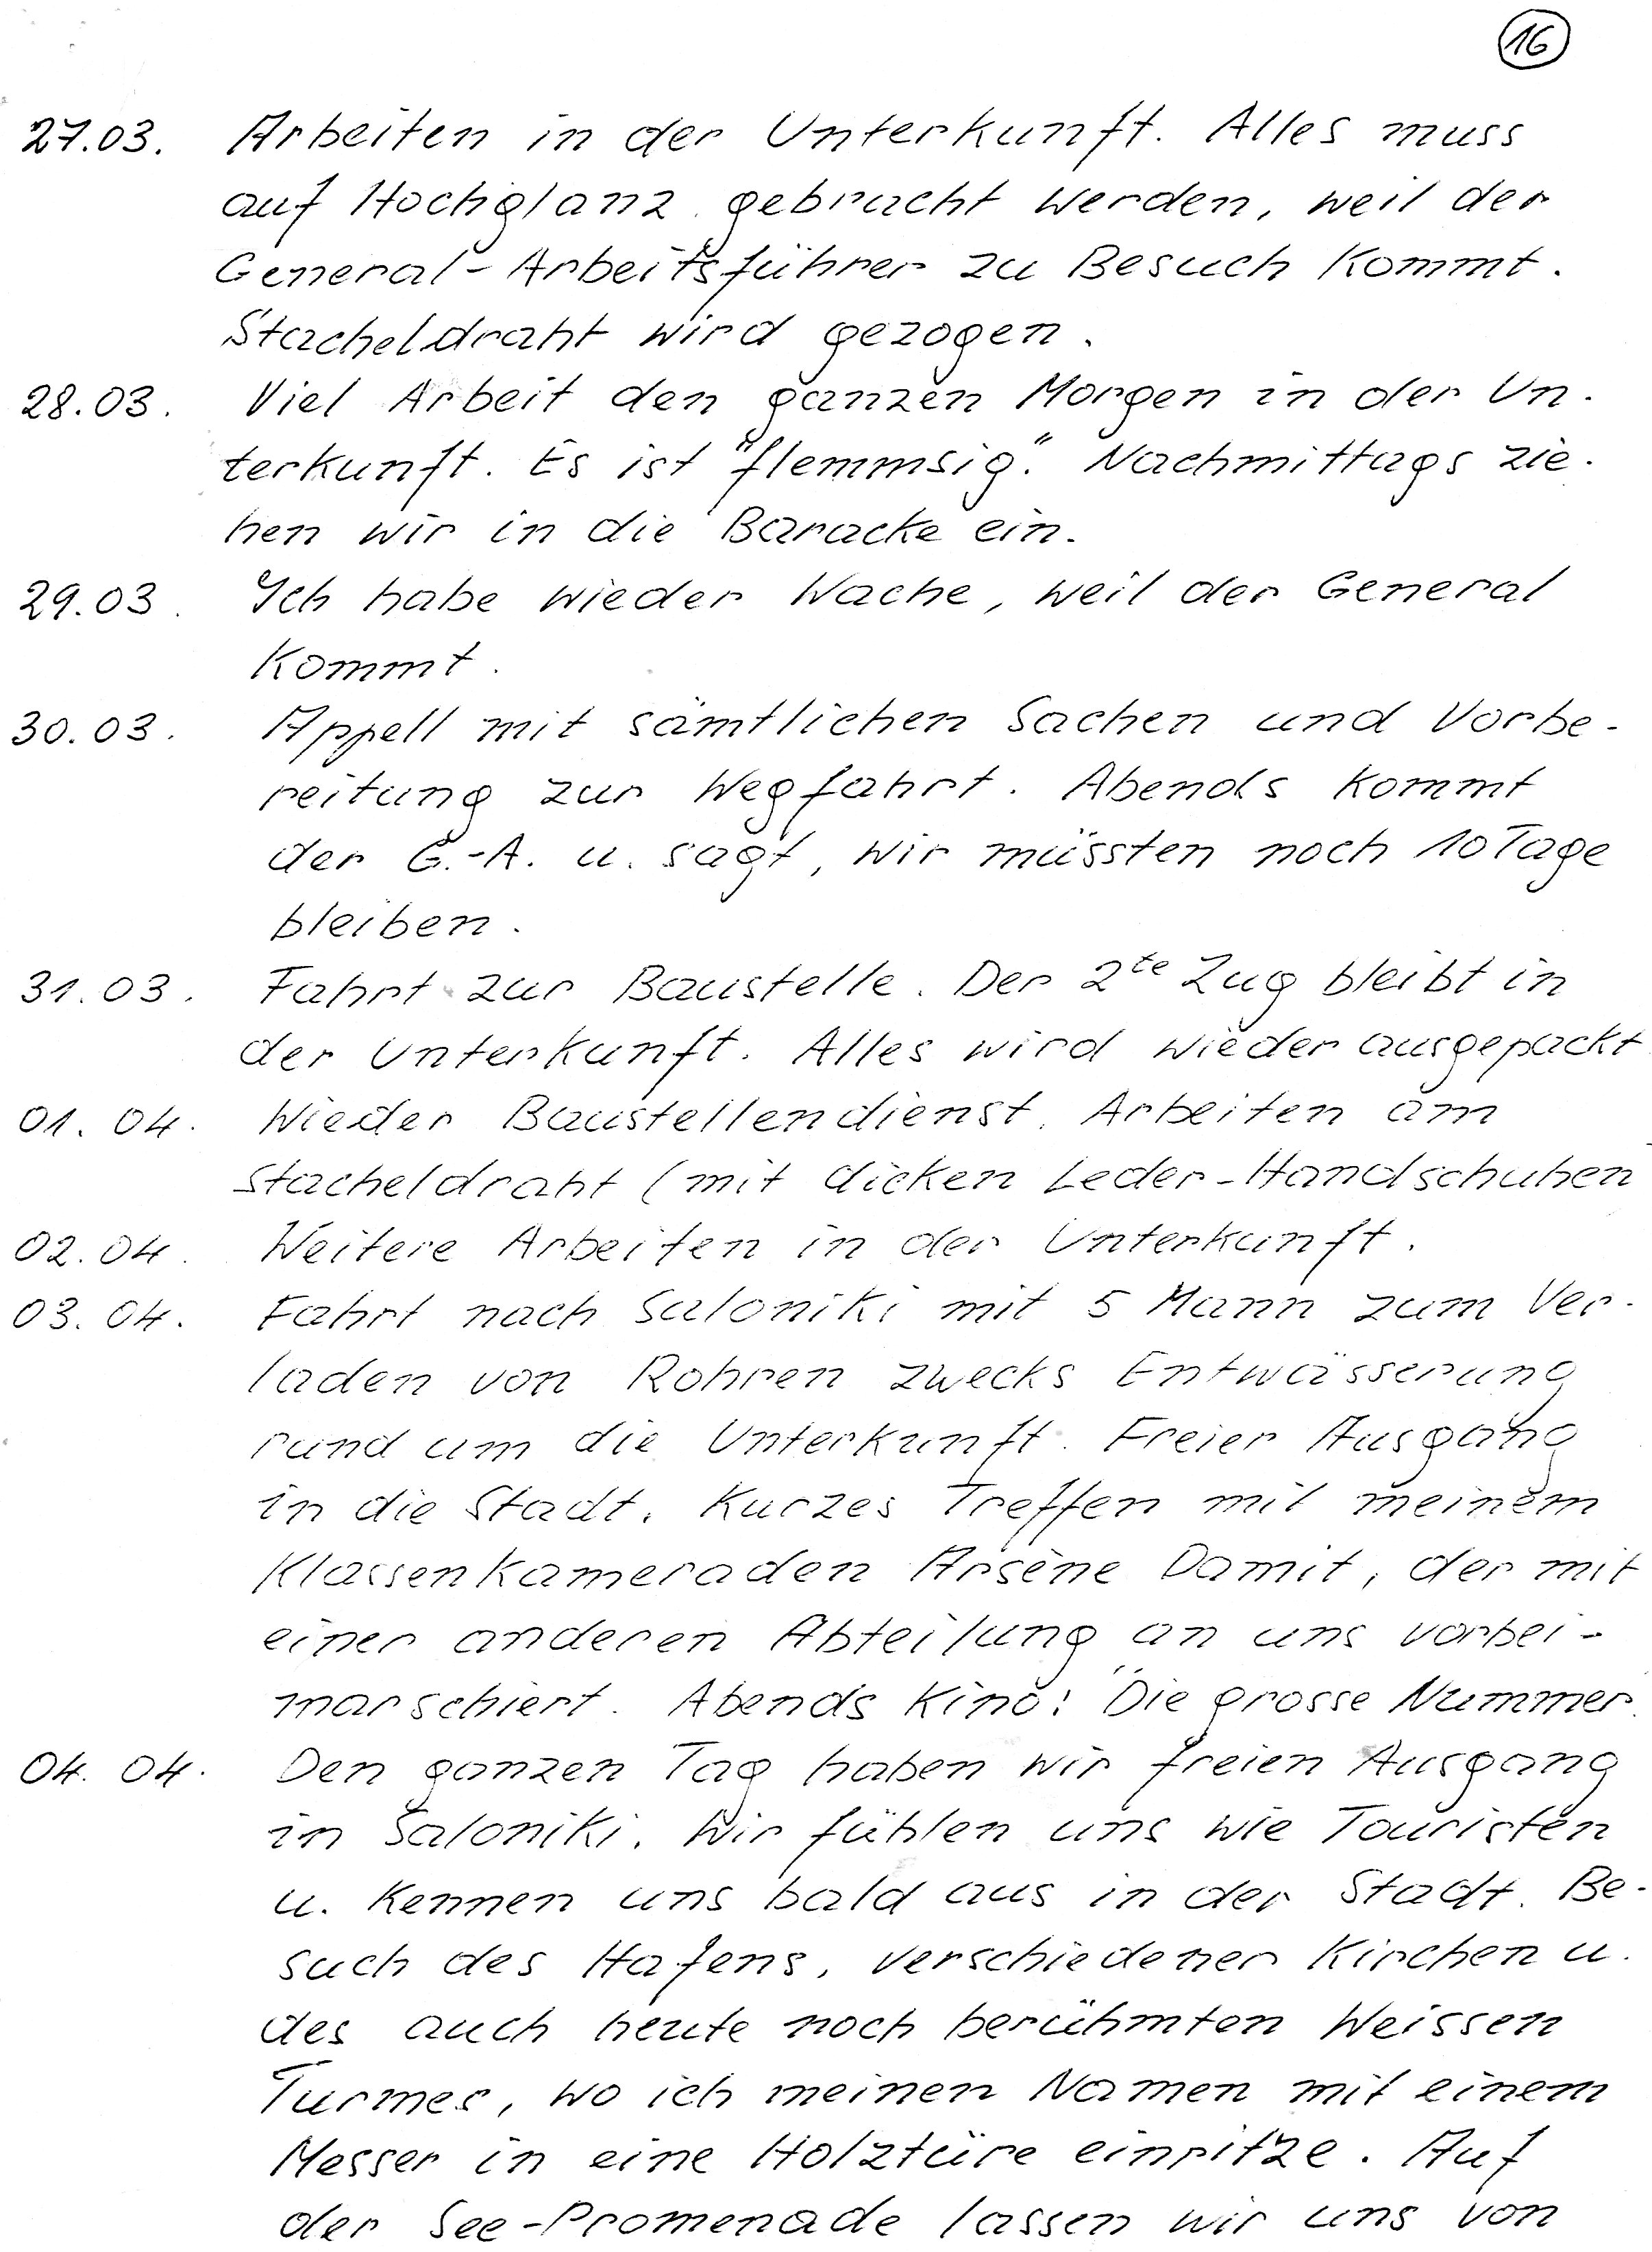 16
27.03. Arbeiten in der Unterkunft. Alles muss
auf Hochglanz gebracht werden, weil der
General-Arbeitsführer zu Besuch kommt.
Stacheldraht wird gezogen.
28.03. Viel Arbeit den ganzen Morgen in der Un-
terkunft. Es ist "flemmsig". Nachmittags zie-
hen wir in die Baracke ein.
29.03. Ich habe wieder Wache, weil der General
kommt.
30.03. Appell mit sämtlichen Sachen und Vorbe-
reitung zur Wegfahrt. Abends kommt
der G.-A. u. sagt, wir müssten noch 10 Tage
bleiben.
31.03. Fahrt zur Baustelle. Der 2te Zug bleibt in
der Unterkunft. Alles wird wieder ausgepackt
01.04. Wieder Baustellendienst. Arbeiten am
Stacheldraht (mit dicken Leder-Handschuhen
02.04. Weitere Arbeiten in der Unterkunft.
03.04. Fahrt nach Saloniki mit 5 Mann zum Ver-
laden von Rohren zwecks Entwässerung
rund um die Unterkunft. Freier Ausgang
in die Stadt. Kurzes Treffen mit meinem
Klassenkameraden Arsène Damit, der mit
einer anderen Abteilung an uns vorbei-
marschiert. Abends Kino: "Die grosse Nummer.
04.04. Den ganzen Tag haben wir freien Ausgang
in Saloniki. Wir fühlen uns wie Touristen
u. kennen uns bald aus in der Stadt. Be-
such des Hafens, verschiedener Kirchen u.
des auch heute noch berühmten Weissen
Turmes, wo ich meinen Namen mit einem
Messer in eine Holztüre einritze. Auf
der See-Promenade lassen wir uns von